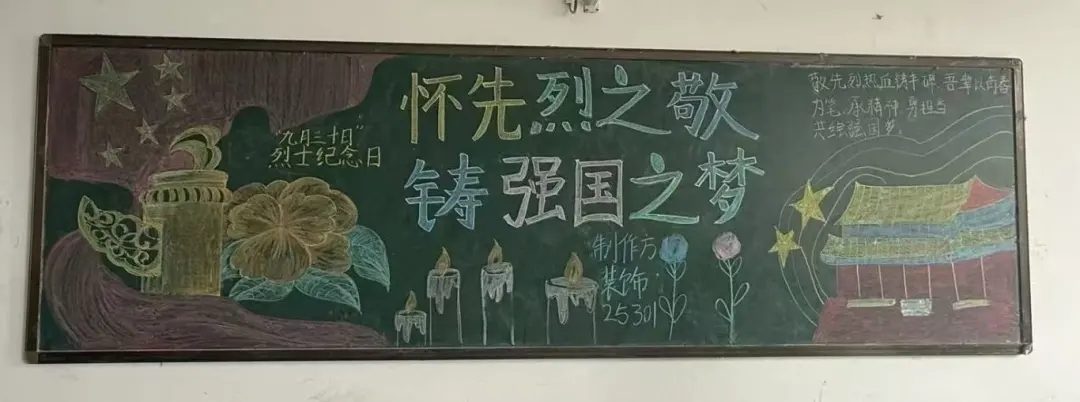 怀先烈之敬
铸强国之梦
"九月三十日"
烈士纪念日
敬先烈热血铸丰碑,吾辈以青春
为笔,承精神,勇担当
共绘强国梦。
制作方
装饰
25301